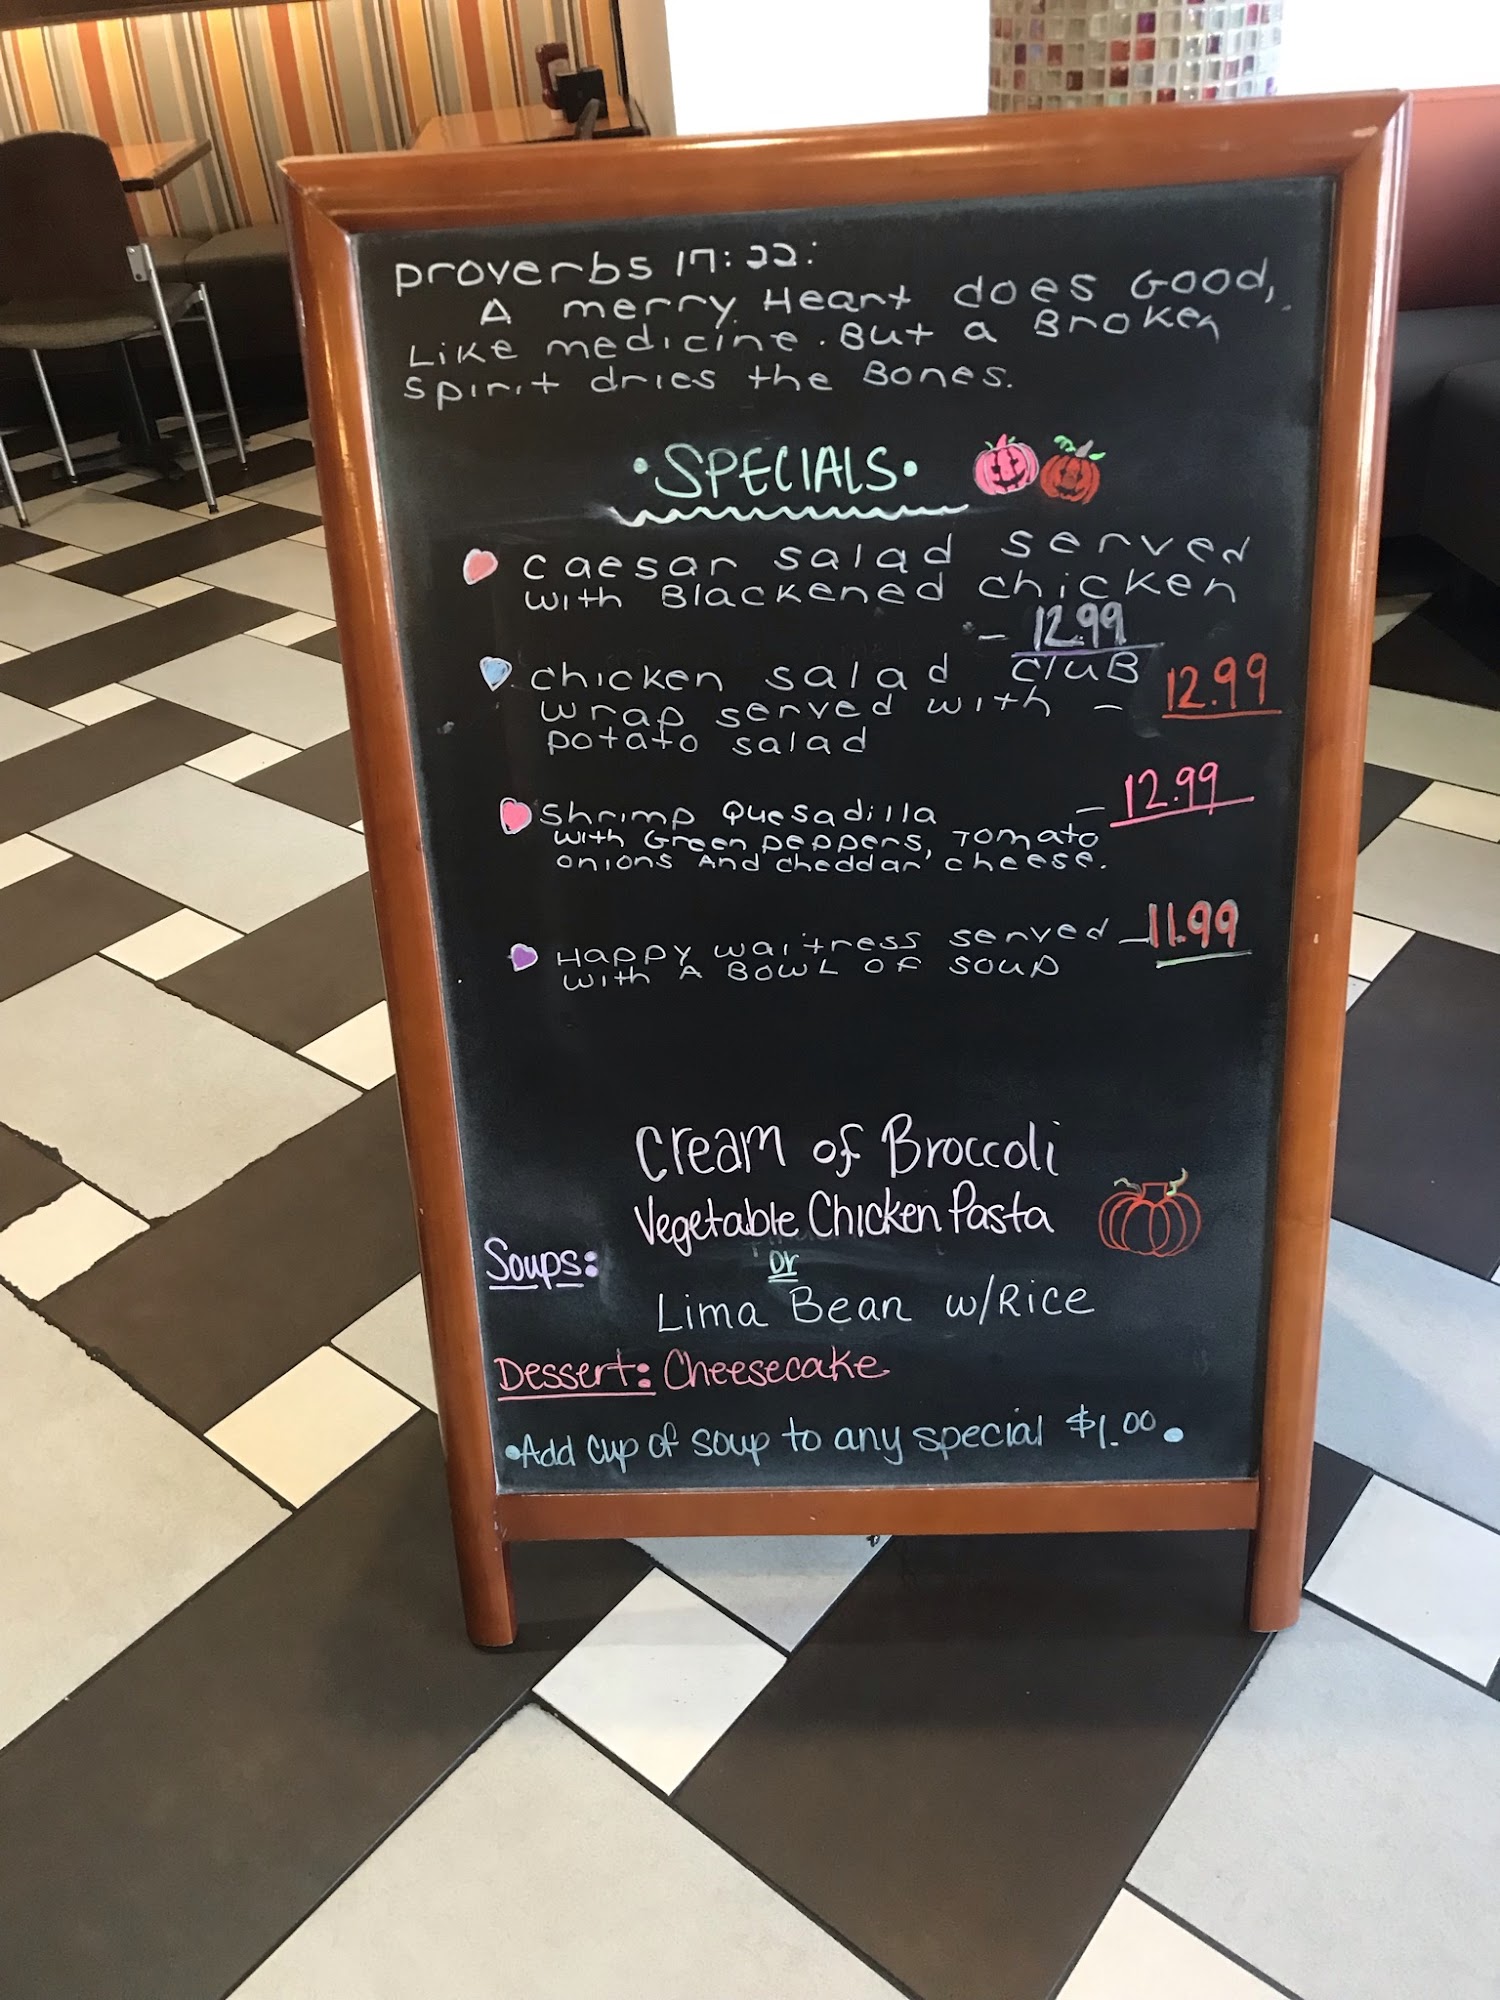 Proverbs 17:22:
A merry Heart does Good,
Like medicine. But a Broken
Spirit dries the Bones.
•SPECIALS•
Caesar salad served
with Blackened chicken
- 12.99
Chicken salad club
wrap served with - 12.99
potato salad
Shrimp Quesadilla - 12.99
with Green peppers, Tomato
onions And cheddar cheese.
Happy waitress served - 11.99
with A Bowl of soup
Cream of Broccoli
Vegetable Chicken Pasta
Soups: or
Lima Bean w/Rice
Dessert: Cheesecake
•Add cup of soup to any special $1.00•